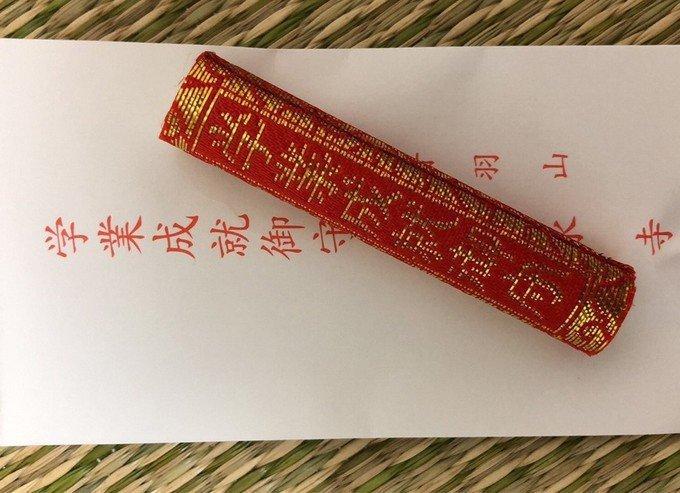 学業成就御守
羽山
水寺
学業成就御守